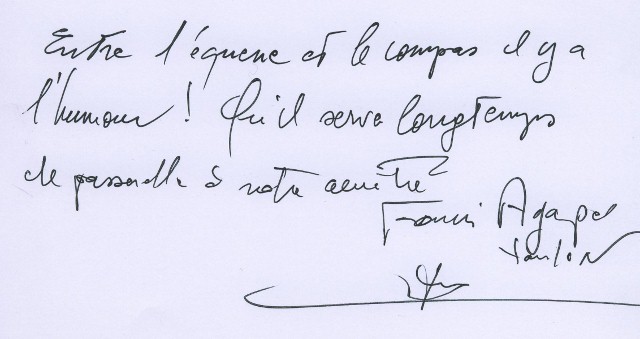 Entre l'équerre et le compas il y a
l'humour ! Qu'il serve longtemps
de passerelle à notre amitié
Francis Agapé
Toulon